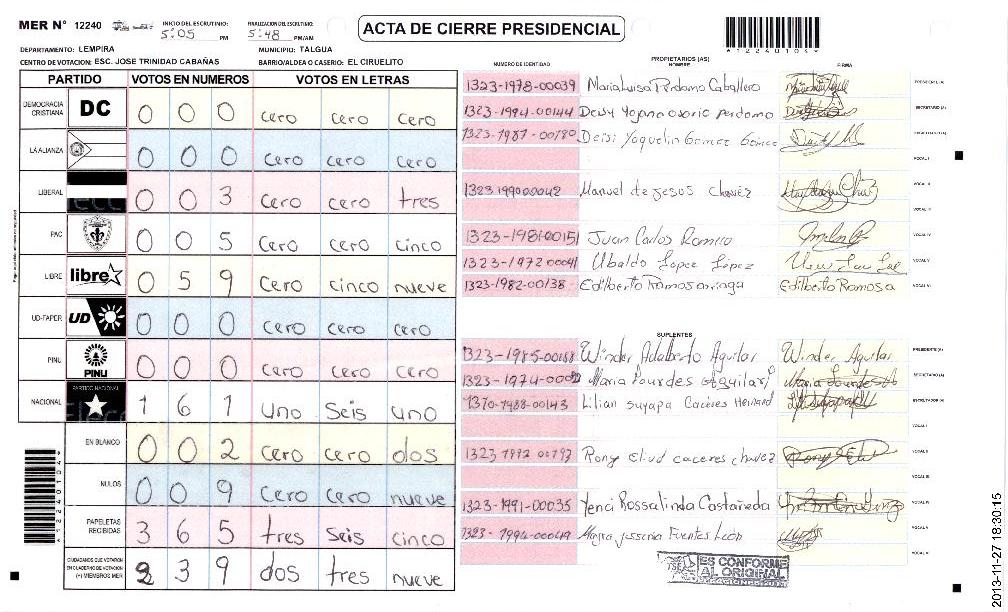 MER N° 12240
INICIO DEL ESCRUTINIO: 5:05 PM
FINALIZACION DEL ESCRUTINIO: 5:48 PM/AM
ACTA DE CIERRE PRESIDENCIAL
1 2 2 4 0 1 0 4
DEPARTAMENTO: LEMPIRA
MUNICIPIO: TALGUA
CENTRO DE VOTACION: ESC. JOSE TRINIDAD CABAÑAS
BARRIO/ALDEA O CASERIO: EL CIRUELITO
PARTIDO VOTOS EN NUMEROS VOTOS EN LETRAS
DEMOCRACIA CRISTIANA DC 0 0 0 cero cero cero
LA ALIANZA 0 0 0 cero cero cero
LIBERAL 0 0 3 cero cero tres
PAC 0 0 5 cero cero cinco
LIBRE libre 0 5 9 cero cinco nueve
UD-FAPER UD 0 0 0 cero cero cero
PINU PINU 0 0 0 cero cero cero
NACIONAL PARTIDO NACIONAL 1 6 1 uno seis uno
EN BLANCO 0 0 2 cero cero dos
NULOS 0 0 9 cero cero nueve
PAPELETAS RECIBIDAS 3 6 5 tres seis cinco
CIUDADANOS QUE VOTARON EN CUADERNO DE VOTACION (+) MIEMBROS MER 2 3 9 dos tres nueve
PROPIETARIOS (AS)
NUMERO DE IDENTIDAD NOMBRE FIRMA
1323-1978-00039 Maria Luisa Perdomo Caballero PRESIDENTE (A)
1323-1994-00144 Deisy Yojana osorio perdomo SECRETARIO (A)
1323-1987-00180 Deisi Yaquelin Gomez Gomez
VOCAL I
1323 1990 00042 Manuel de jesus chavez
1323-1981-00151 Juan Carlos Romero VOCAL IV
1323-1972 00041 Ubaldo Lopez López VOCAL V
1323-1982-00138 Edilberto Ramos Edilberto Ramosa VOCAL VI
SUPLENTES
1323-1985-00168 Winder Adalberto Aguilar Winder Aguilar PRESIDENTE (A)
1323-1974- Maria Lourdes SECRETARIO (A)
1370-1988-00143 Lilian suyapa Caceres
VOCAL I
1323 1992 00197 Rony Eliud caceres chavez
1323-1991-00035 Yenci Rossalinda Castañeda
1323-1994-00049 Mayra jessenia Fuentes Leon
TSE ES CONFORME AL ORIGINAL
2013-11-27 18:30:15